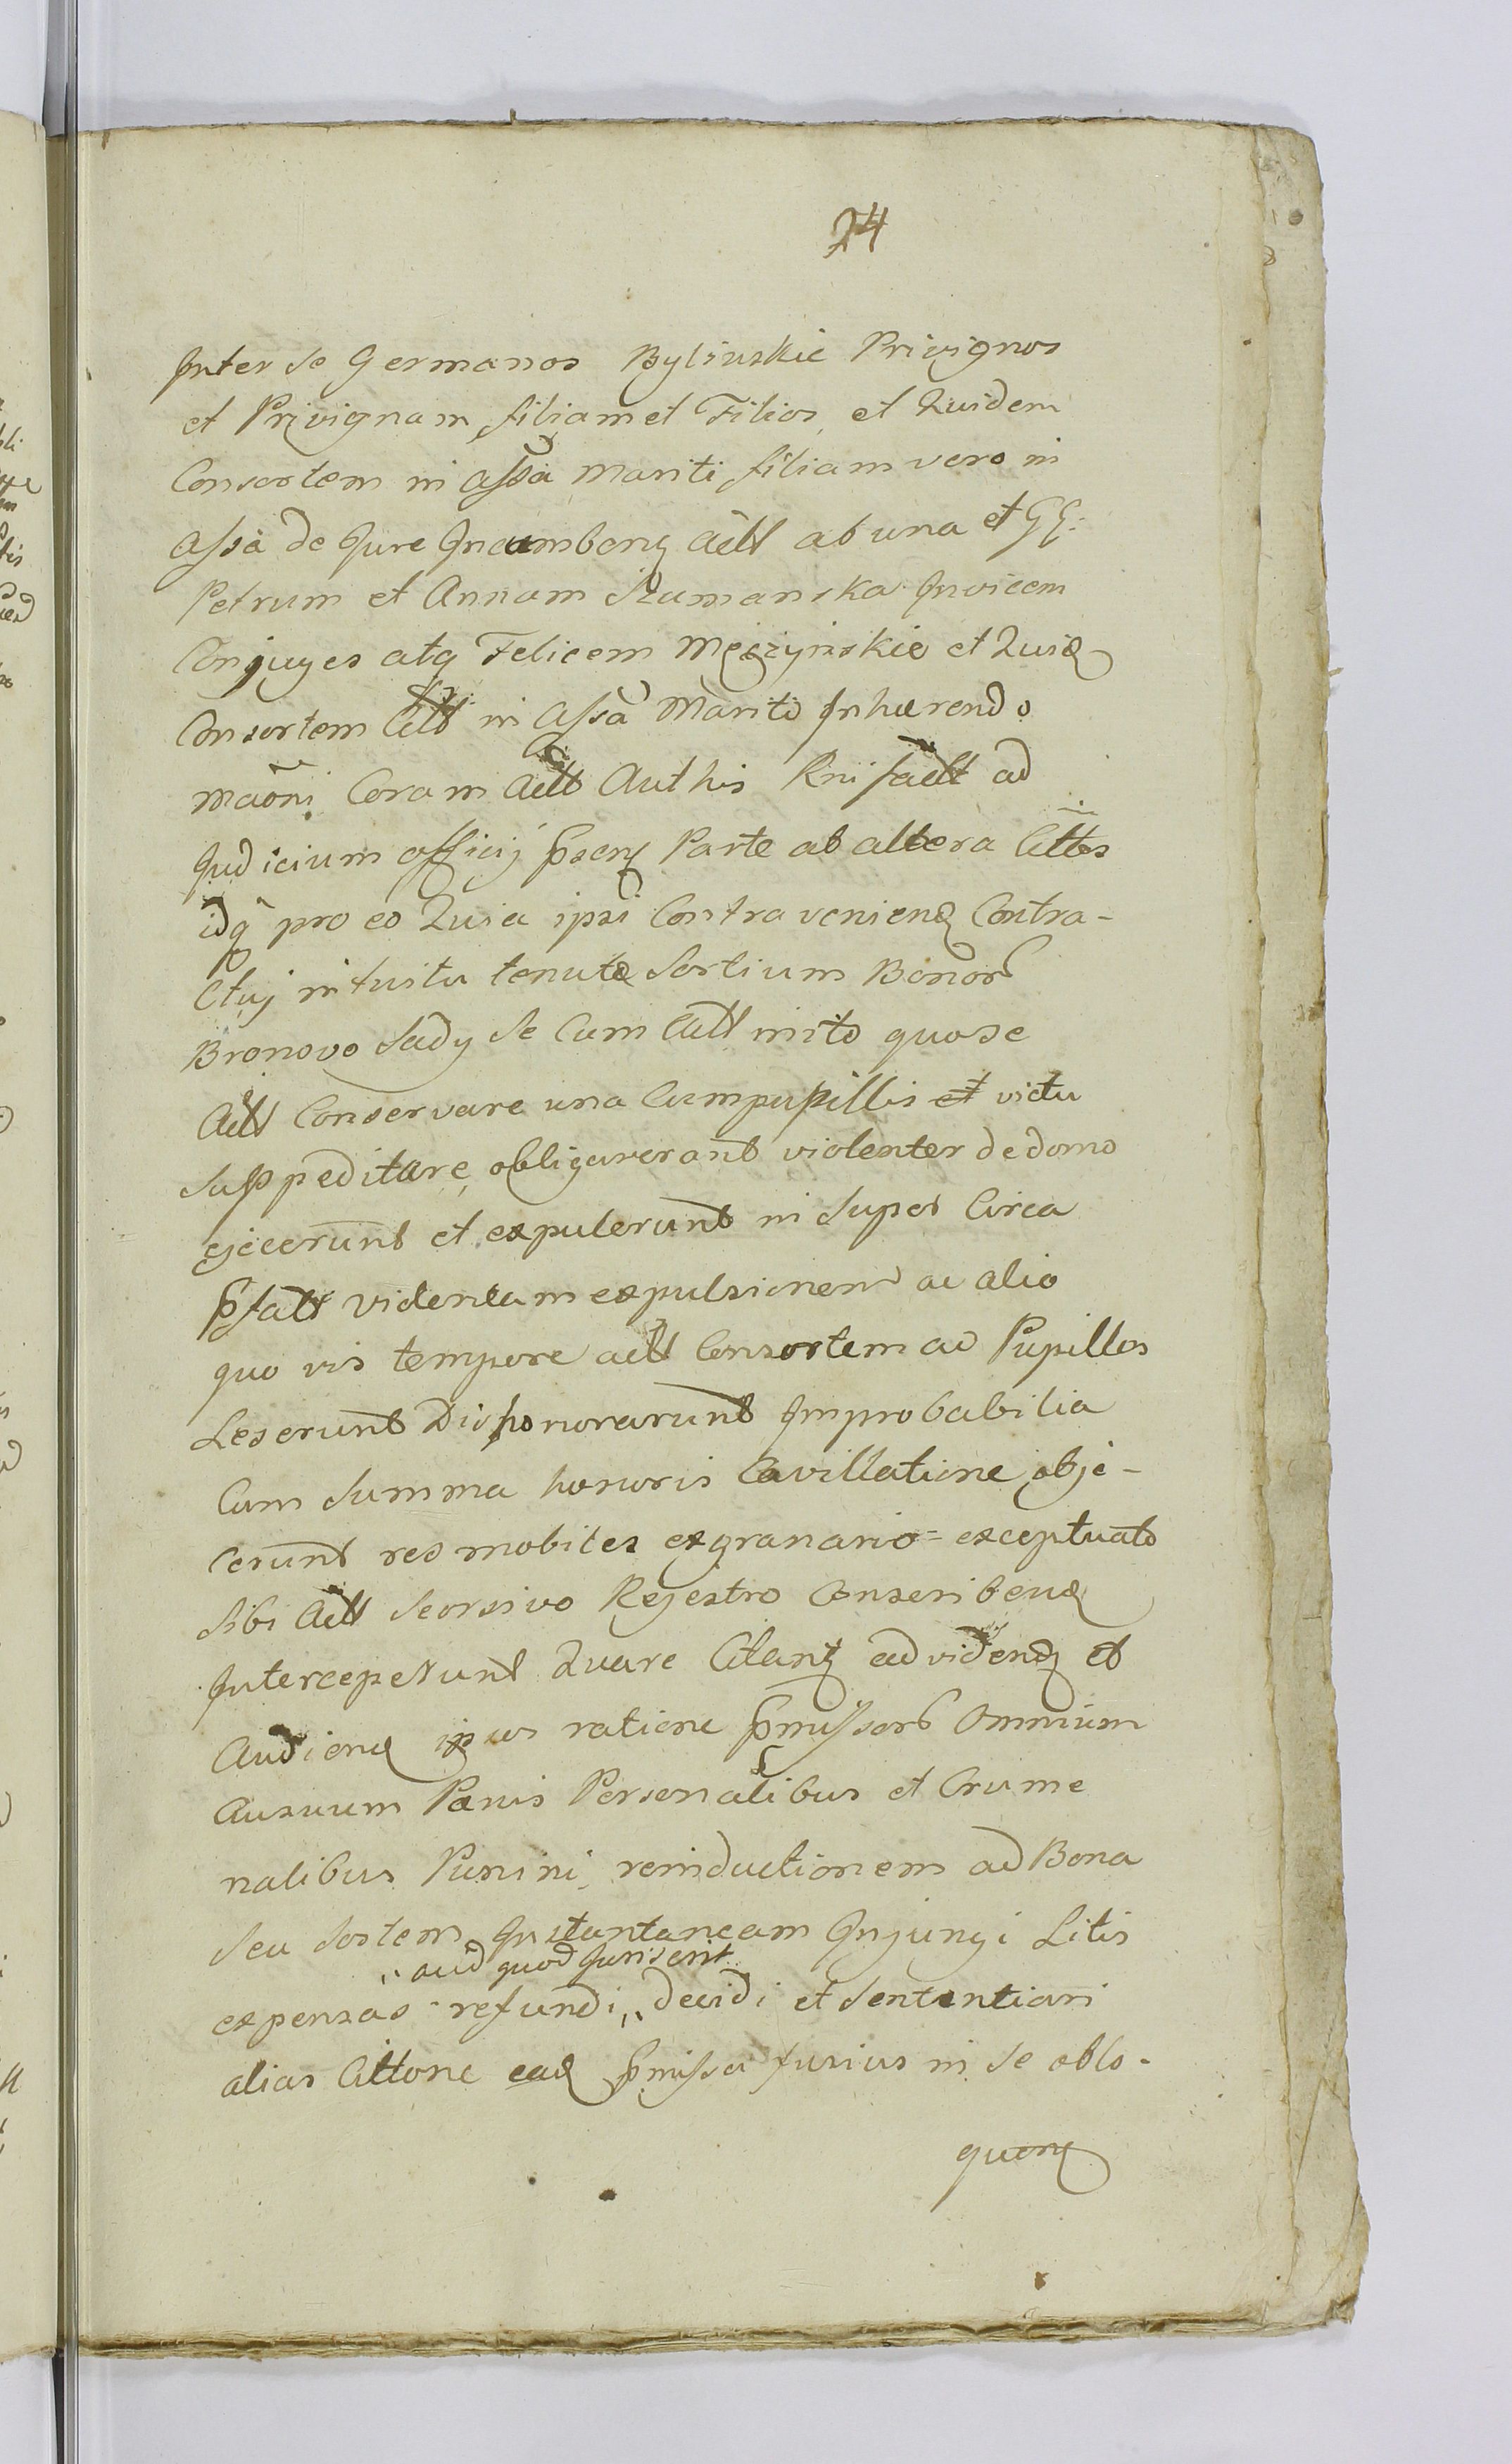 24
Inter se Germanos Bylinskie Privignos
et Privignam, filiam et Filios, et Quidem
Consortem in assa Mariti filiam vero in
assa de Jure Incumben actt ab una et GG:
Petrum et Annam Szumanska Invicem
Conjuges atq Felicem Mężzynskie et Quid
Consortem in assa Mariti Inhærendo
Maoni Coram actt Authis Rni factt ad
Judicium officij pnsen Parte ab altera Cittos
idq pro eo Quia ipsi Contra veniend Contra-
ctuj intuitu tenutæ Sortium Bonor
Bronovo Sady se Cum actt inito quo se
actt Conservare una Cum pupillis et victu
Suppeditare, obligaverant violenter de domo
ejecerunt et expulerunt in super Circa
pfatt videntam expulsionem ac alio
quo vis tempore actt Consortem ac Pupillos
Leserunt Dishonorarunt Improbabilia
Cum Summa honoris Cavillatione obje-
cerunt res mobiles ex granario = exceptuato
Sibi actt Seorsivo Rejestro Conseribend
Interceperunt Quare Citant ad vidend et
Audiend ipsos ratione pmissor Omnium
Ausuum Pænis Personalibus et Crume
nalibus Puniri, reinductionem ad Bona
Seu Sortem Instantaneam Injungi Litis
,, aud quod Juris erit
expensas refundi ,, decidi et Sententiari
alias Cittone ead pmissa fusius in se oblo-
quen